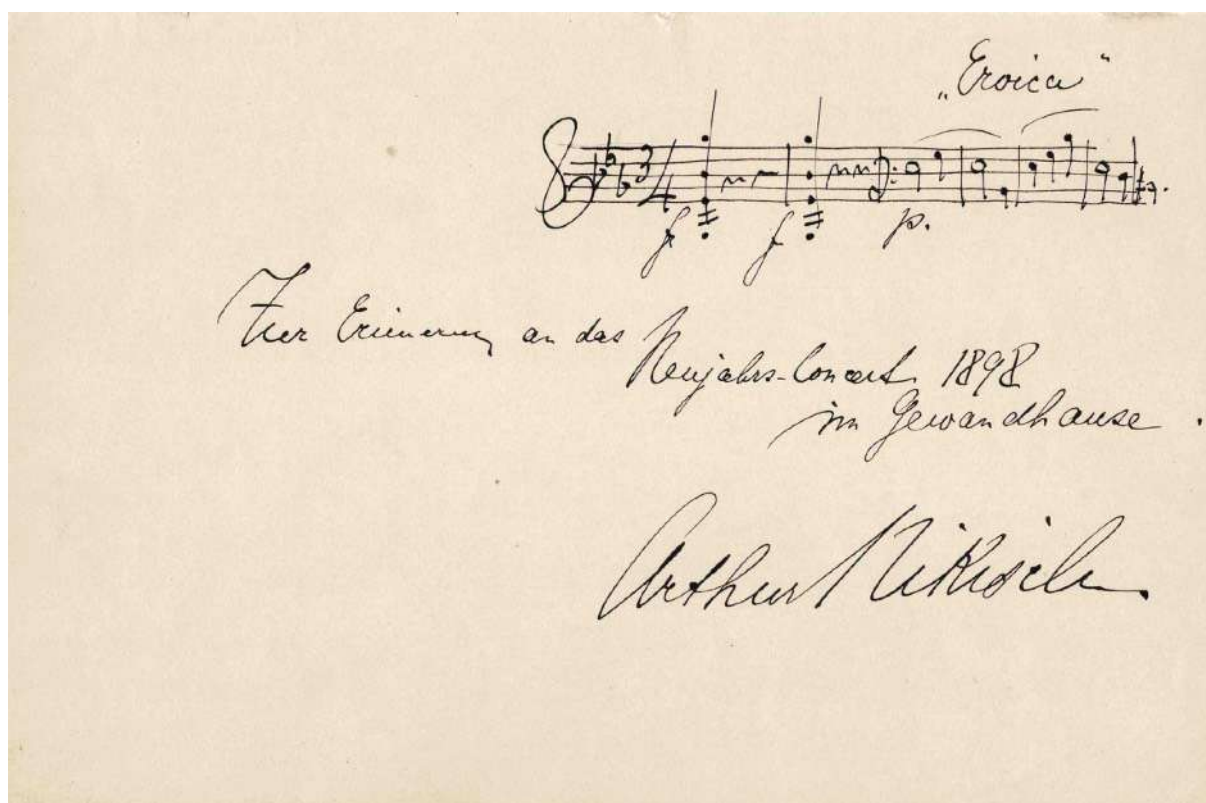 „Eroica"
3/4
f f p.
Zur Erinnerung an das
Neujahrs-Concert 1898
im Gewandhause.
Arthur Nikisch